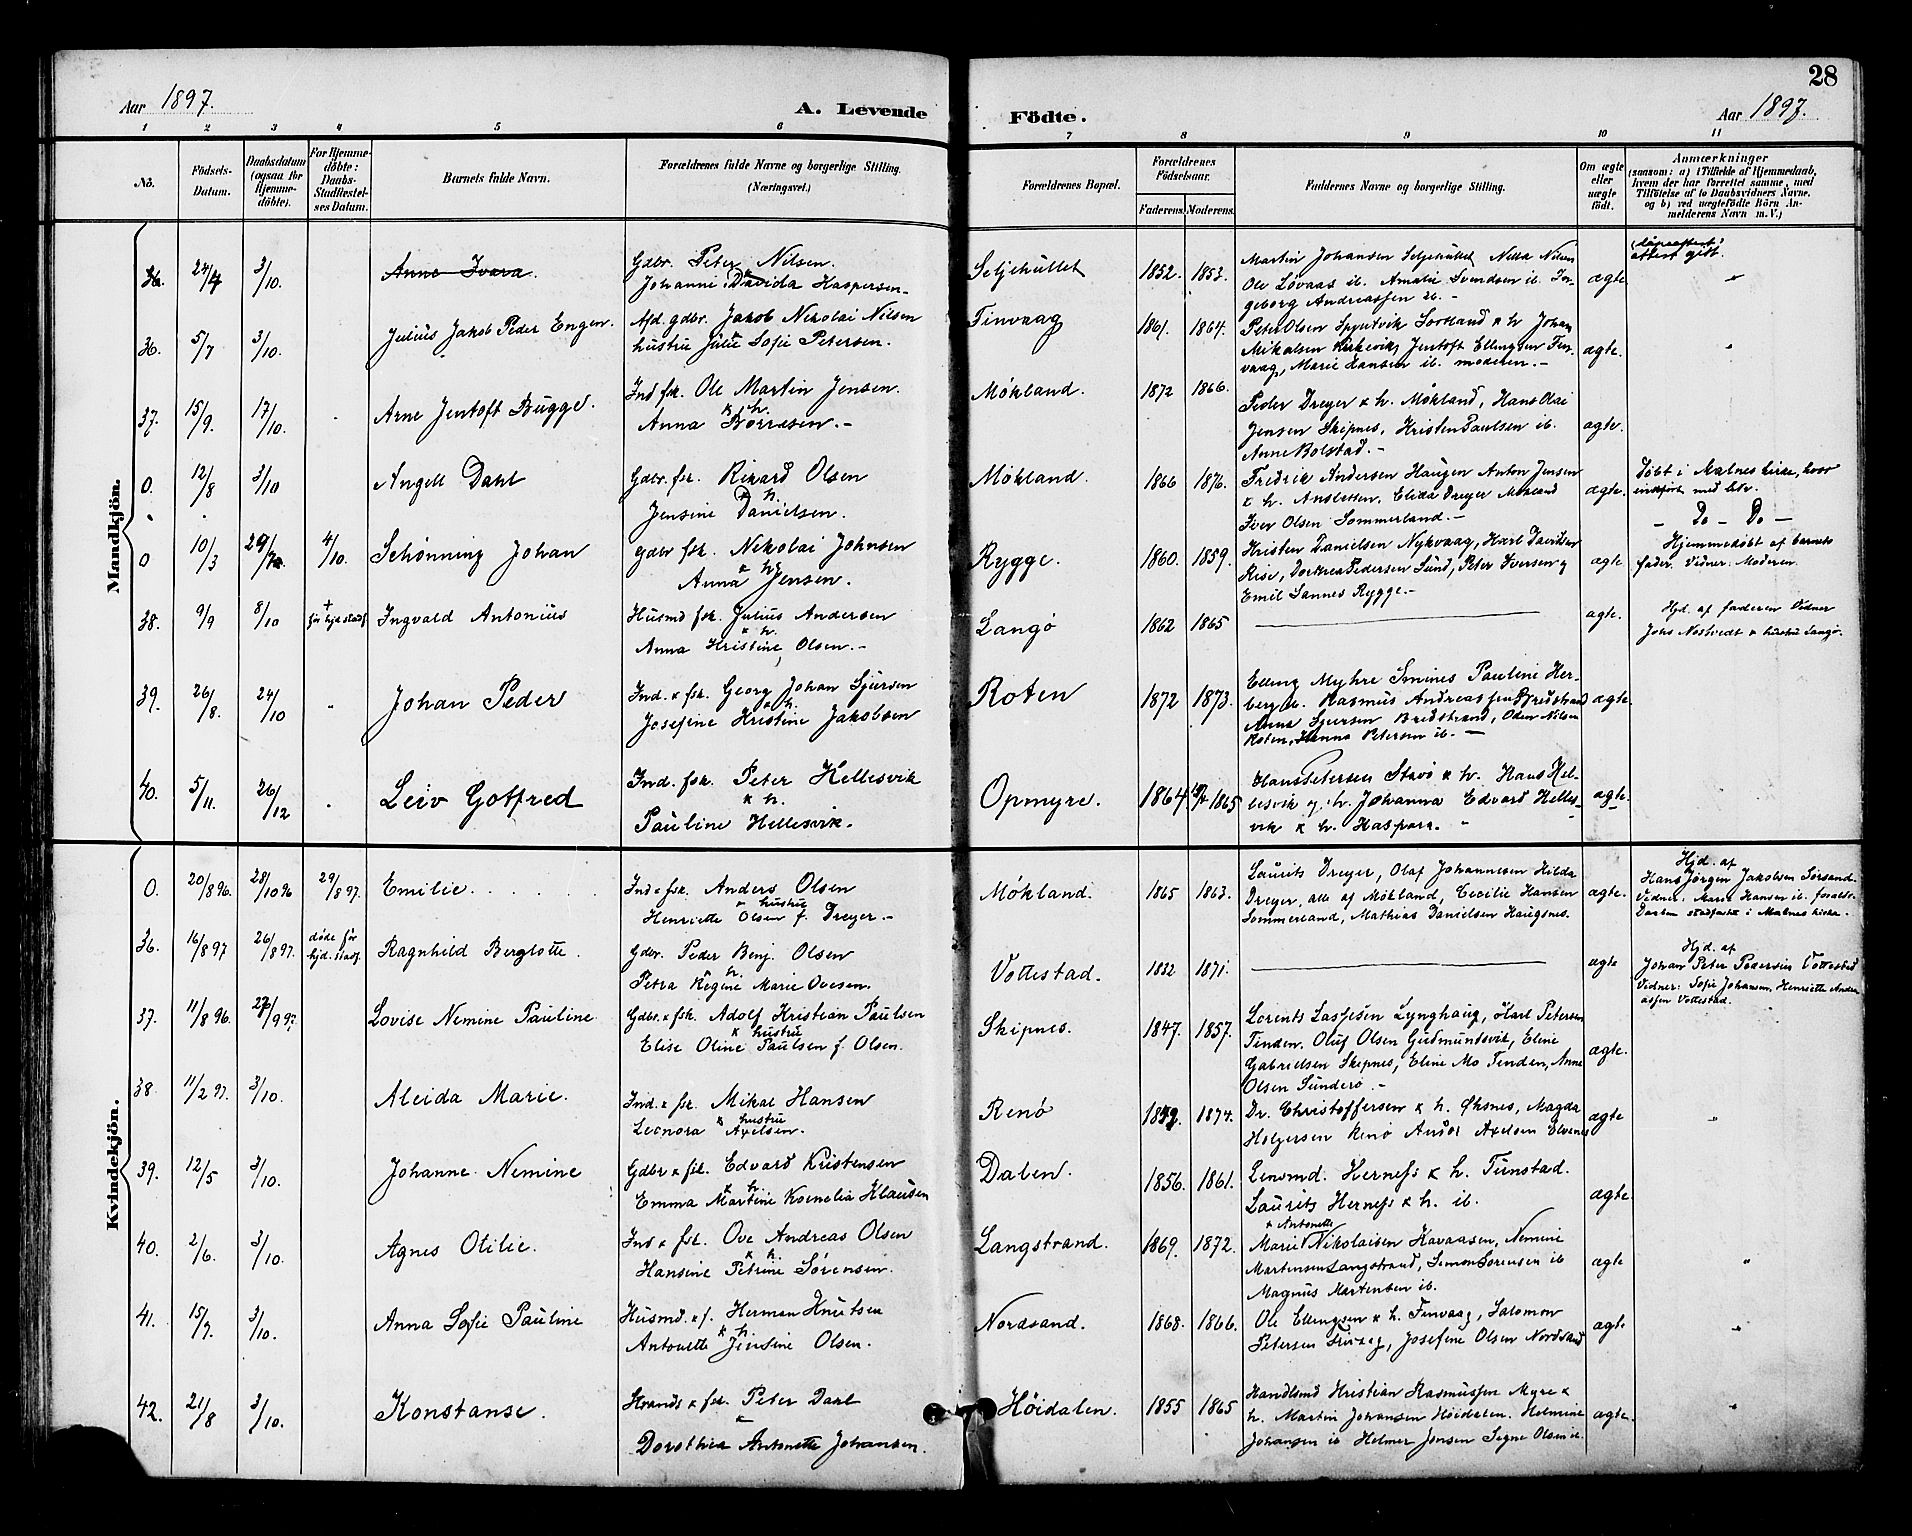 28
Aar 1897.
A. Levende
Födte.
Aar 1897.
1 2 3 4 5 6 7 8 9 10 11
No.
Födsels-
Datum.
Daabsdatum
(ogsaa for
Hjemme-
döbte).
For Hjemme-
döbte:
Daabs-
Stadfæstel-
ses Datum.
Barnets fulde Navn.
Forældrenes fulde Navne og borgerlige Stilling.
(Næringsvei.)
Forældrenes Bopæl.
Forældrenes
Födselsaar.
Faderens. Moderens.
Faddernes Navne og borgerlige Stilling.
Om ægte
eller
uægte
födt.
Anmærkninger
(saasom: a) i Tilfælde af Hjemmedaab,
hvem der har forrettet samme, med
Tilföielse af to Daabsvidners Navne.
og b) ved uægtefödte Börn An-
melderens Navn m. V.)
Mandkjön.
36. 24/4 3/10. Anne Ivara.
Gdbr. Peter Nilsen.
Johanne Davida Haspersen
Seljehullet 1852. 1853.
Martin Johansen Seljehullet Nella Nilsen
Ole Løvaas ib. Amalie Svendsen ib. In-
geborg Andreassen ib. -
ægte "
attest gift.
36. 5/7 3/10. Julius Jakob Peder Engen.
Afd. gdbr. Jakob Nikolai Nilsen
hustru Julie Sofie Petersen.
Finvaag 1861. 1864.
Peter Olsen Spjutvik Sortland & h. Johan
Mikalsen Kirkevik, Jentoft Ellingsen Fin-
vaag, Marie Hansen ib. moderen. -
ægte. "
37. 15/9. 17/10. Arne Jentoft Bugge.
Ind fsk. Ole Martin Jensen.
& h.
Anna Borresen. -
Møkland. 1872 1866.
Peder Dreyer & h. Møkland, Hans Olai
Jensen Skipnes, Kristen Paulsen ib.
Anne Bolstad. -
ægte.
0. 12/8 3/10 Angell Dahl
Gdbr. fsk. Rikard Olsen
& h.
Jensine Danielsen.
Møkland. 1866 1876.
Fredrik Andersen Haugen Anton Jensen
& h. Ansletten, Elida Dreyer Møkland
Iver Olsen Sommerland. -
ægte.
Døbt i Malnes kirke, hvor
indført med No.
- Do - Do -
0 10/3 4/10. Schønning Johan
Gdbr fsk. Nekolai Johnsen
& h.
Anna Jensen.
Rygge. 1860. 1859.
Kristen Danielsen Nykvaag, Karl Davidsen
Rise, Dorthea Pedersen Sund, Peter Iversen &
Emil Sannes Rygge. -
ægte
Hjemmedøbt af barnets
fader. Vidner: Moderen.
38. 9/9 8/10 + før hjd stadf Ingvald Antonius
Husmd fsk. Julius Andersen
& h.
Anna Kristine Olsen. -
Langø 1862 1865
ægte.
Hjd. af faderen Vidner
Johs Nostvedt & hustru Langø.
39. 26/8. 24/10 " Johan Peder
Ind. & fsk. Georg Johan Sjursen
& h.
Josefine Kristine Jakobsen
Roten 1872 1873.
Elling Myhre Smines Pauline Her-
berg ib. Rasmus Andreassen Bredstrand
Anna Sjursen Bredstrand, Odin Nilsen
Roten, Hanna Petersen ib. -
ægte.
40. 5/11. 26/12 Leiv Gotfred
Ind. fsk. Peter Hellesvik
& h.
Pauline Hellesvik.
Opmyre. 1864. 1865
Hans Petersen Stavø & h. Hans Hel-
lesvik & h. Johanna Edvard Helles-
vik & h. Kaspara.
ægte.
Kvindekjön.
0. 20/8 96. 28/10 96 29/8 97. Emilie.
Ind & fsk. Anders Olsen
& hustru
Henriette Olsen f. Dreyer. -
Møkland. 1865 1863.
Laurits Dreyer, Olaf Johannesen Hilda
Dreyer, alle af Møkland, Cecilie Hansen
Sommerland, Mathias Danielsen Haugsnes.
ægte.
Hjd. af
Hans Jørgen Jakobsen Sørsand.
Vidner: Marie Hansen ib. forældr.
Daaben stadfæstet i Malnes kirke.
36. 16/8 97 26/8 97. døde før hjd. stadf. Ragnhild Berglotte.
Gdbr. Peder Benj. Olsen
& h.
Petra Regine Marie Ovesen.
Vottestad. 1871.
ægte
Hjd. af
Johan Peter Pedersen Vottestad
Vidner: Sofie Johansen, Henriette Ander
assen Vottestad.
37. 11/8 96. 26/9 97. Lovise Nemine Pauline
Gdbr. & fsk. Adolf Kristian Paulsen
& hustru
Elise Oline Paulsen f. Olsen.
Skipnes. 1847. 1857.
Lorents Lassesen Lynghaug, Karl Petersen
Tinden. Oluf Olsen Gudmundsvik, Eline
Gabrielsen Skipnes, Eline Mo Tinden, Anne
Olsen Sunderø. -
ægte.
38. 11/2 97. 3/10. Aleida Marie.
Ind. & fsk. Mikal Hansen
& hustru
Leonora Axelsen.
Renø 1874.
Dr. Christoffersen & h. Øksnes, Magda
Holgersen Renø Axelsen Elvenes
ægte "
39. 12/5 3/10. Johanne Nemine
Gdbr & fsk. Edvard Kristensen
& h.
Emma Martine Kornelia Klausen
Dalen. 1856. 1861.
Lensmd. Herness & h. Tunstad.
Laurits Herness & h. ib.
ægte
40. 2/6. 3/10. Agnes Otilie.
Ind & fsk. Ove Andreas Olsen
& h.
Hansine Petrine Sørensen.
Langstrand. 1869. 1872.
& Antonette
Marie Nikolaisen Havaasen, Nemine
Martensen Langstrand, Simon Sørensen ib
Magnus Martensen ib.
ægte "
41. 15/7. 3/10. Anna Sofie Pauline
Husmd. & f. Herman Knutsen
& h.
Antonette Jensine Olsen.
Nordsand. 1868. 1866.
Ole Ellingsen & h. Finvaag, Salomon
Petersen Finvaag, Josefine Olsen Nordsand
ægte "
42. 21/8 3/10. Konstanse.
Strands & fsk. Peter Dahl
&
Dorothea Antonette Johansen.
Höidalen. 1855 1865
Handlsmd Kristian Rasmussen Myre &
h. Martin Johansen Höidalen. Helmine
Johansen ib Helmer Jensen Signe Olsen ib.
ægte. "